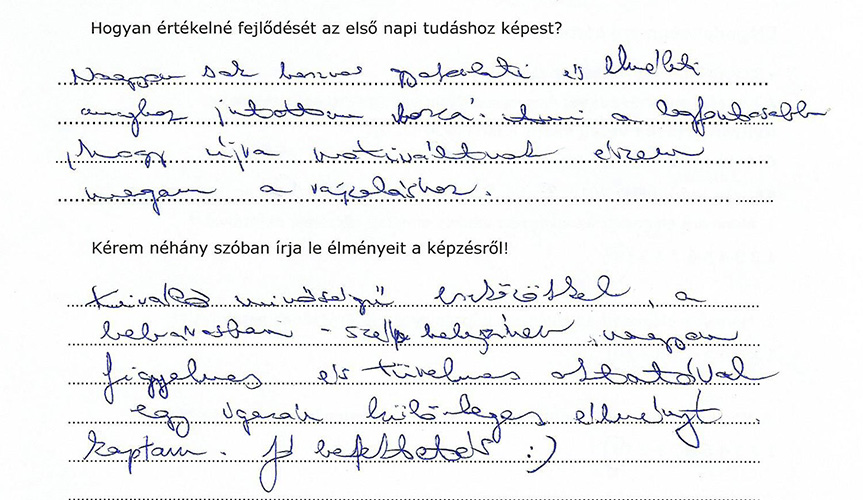 Hogyan értékelné fejlődését az első napi tudáshoz képest?
Nagyon sok hasznos gyakorlati és elméleti
anyaghoz jutottam hozzá. a legfontosabb
, hogy újra motiváltnak érzem
magam a rajzoláshoz.
Kérem néhány szóban írja le élményeit a képzésről!
Kiváló minőségű eszközökkel, a
belvárosban - szép helyszínen nagyon
figyelmes és türelmes oktatóval
egy igazán különleges élményt
kaptam. Jó befektetés :)